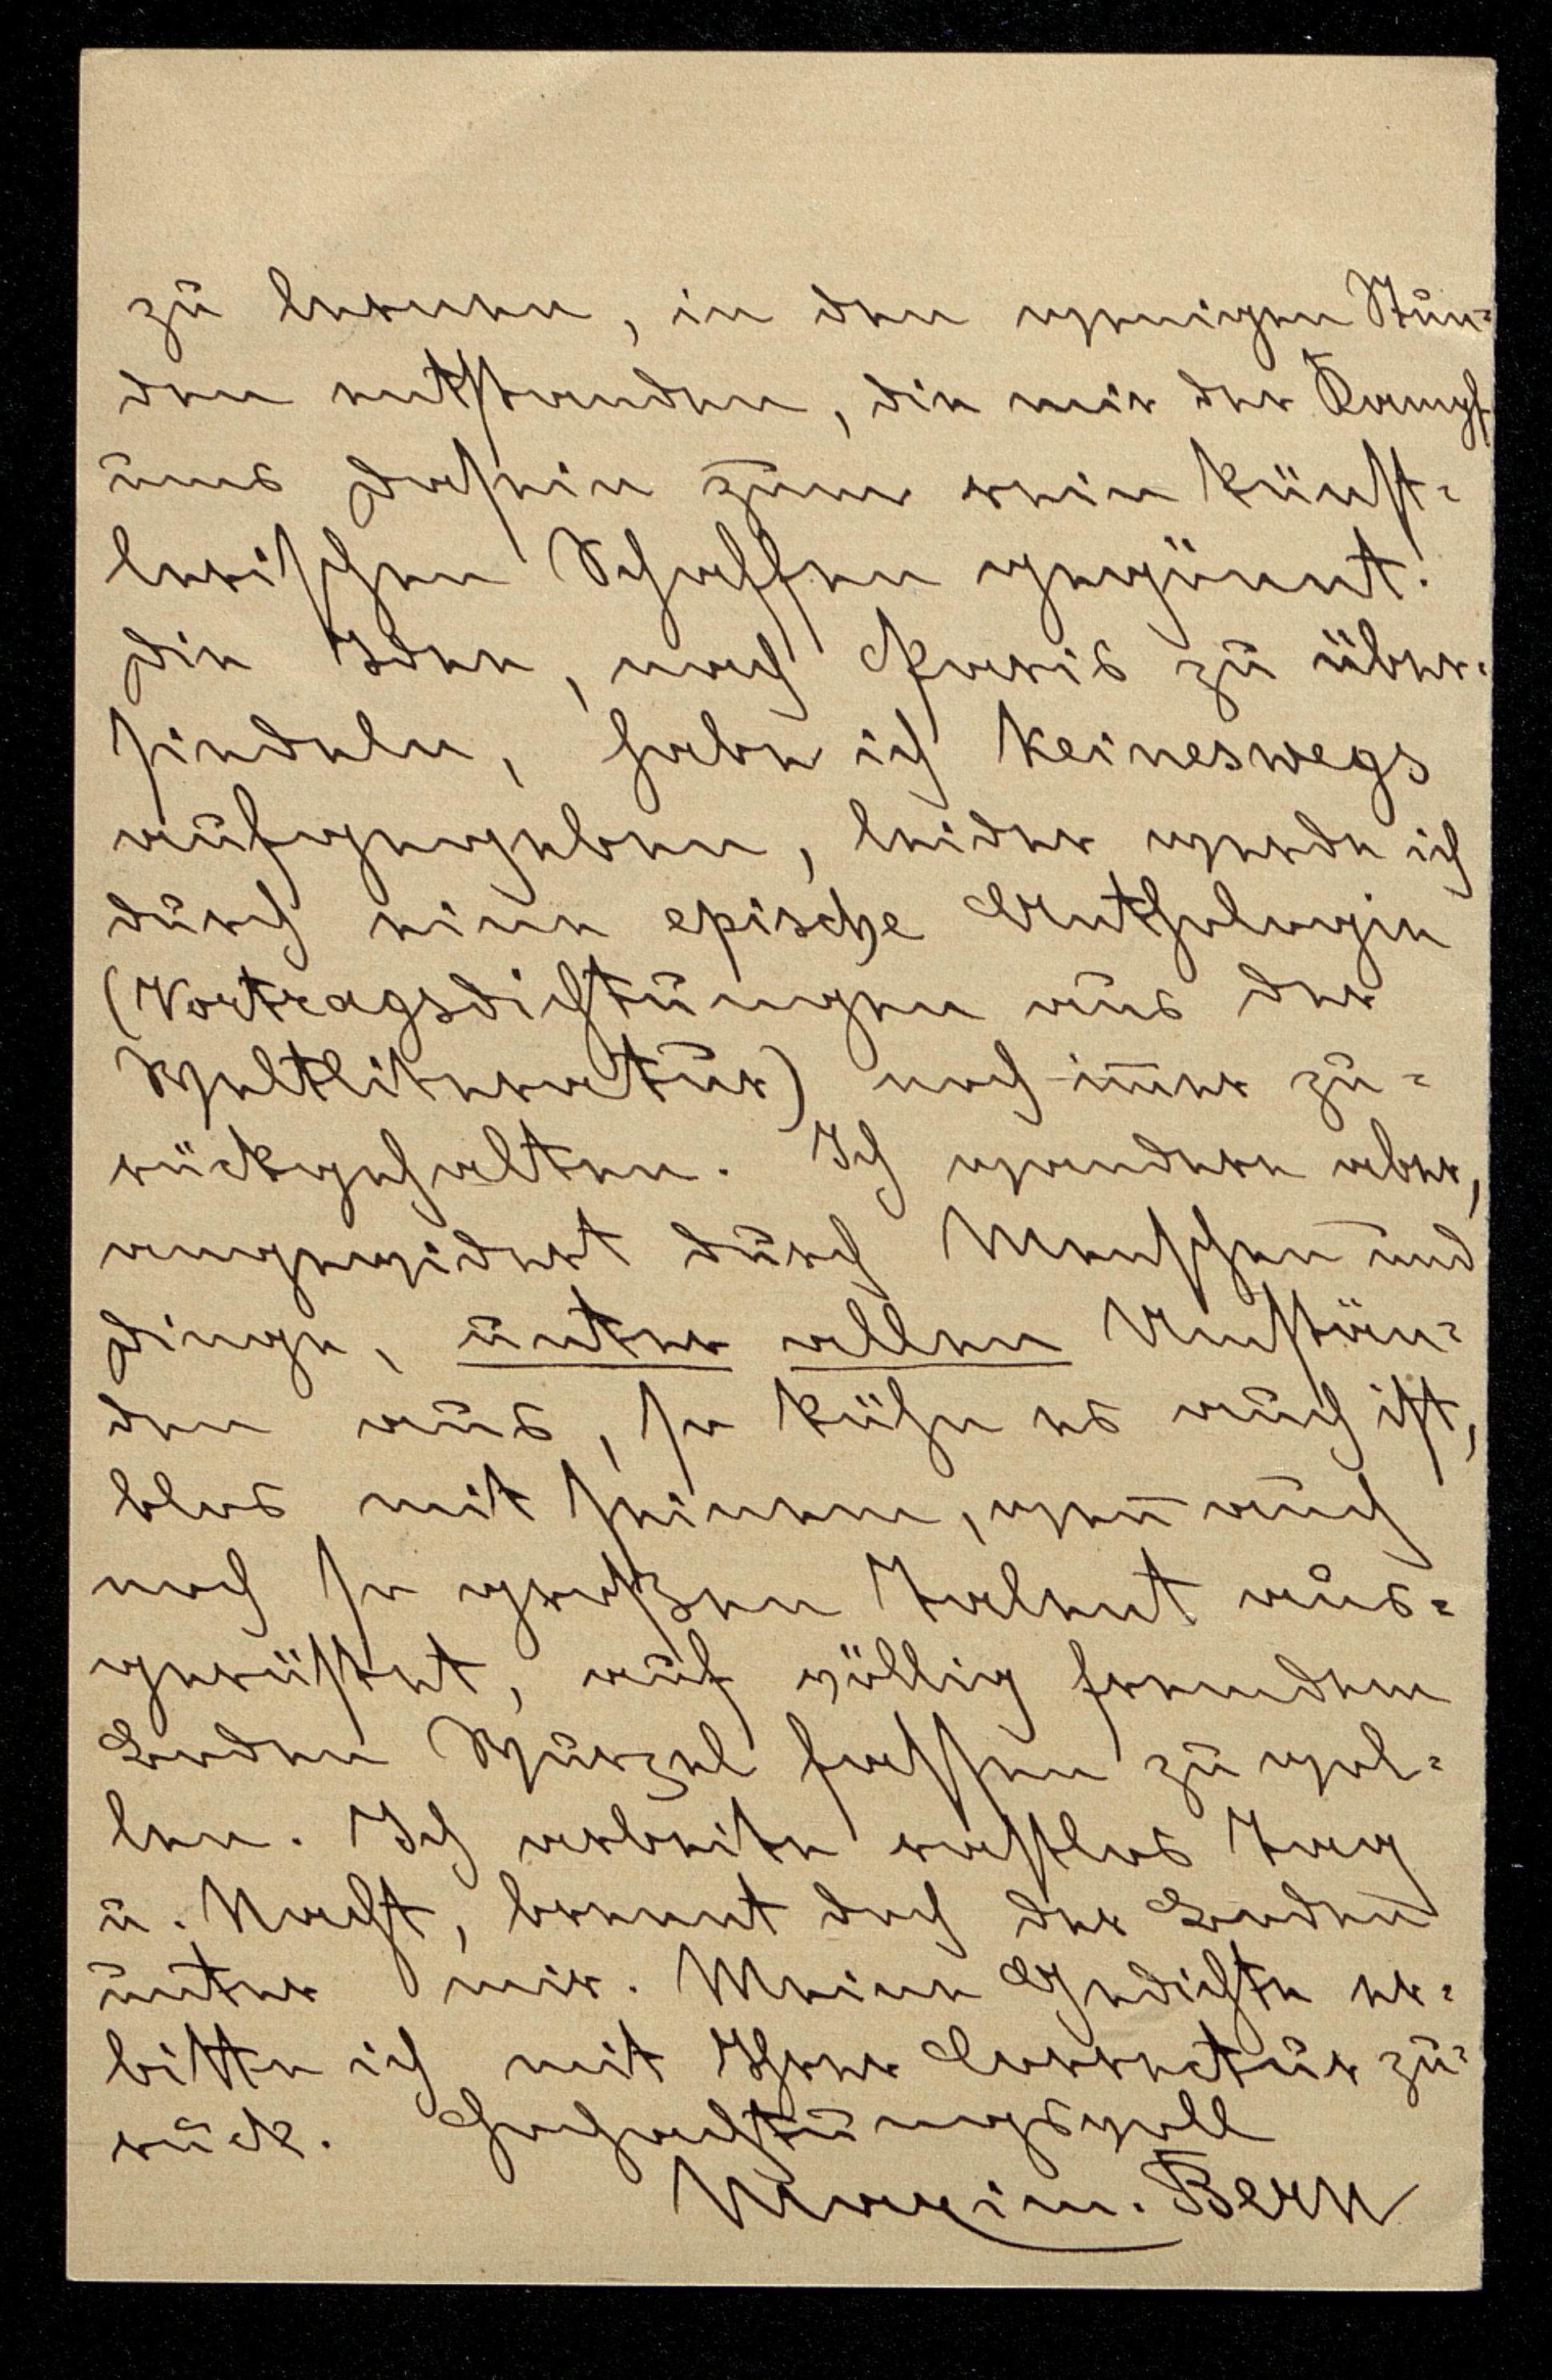 zu lernen, in den wenigen Stun-
den entstanden, die mir der Kampf
ums Dasein zum rein künst-
lerischen Schaffen gegönnt.
Die Idee, nach Paris zu über-
siedeln, habe ich keineswegs
aufgegeben, leider werde ich
durch eine epische Anthologie
(Vortragsdichtungen aus der
Weltliteratur) noch immer zu-
rückgehalten. Ich wandere aber,
angewidert durch Menschen und
Dinge, unter allen Umstän-
den aus, so kühn es auch ist,
blos mit seinem, wenn auch
noch so großen Talent aus-
gerüstet, auf völlig fremdem
Boden Wurzel fassen zu wol-
len. Ich arbeite rastlos Tag
u. Nacht, brennt doch der Boden
unter mir. Meine Gedichte er-
bitte ich mit Ihrer Correctur zu-
rück. Hochachtungsvoll
Maxim. Bern